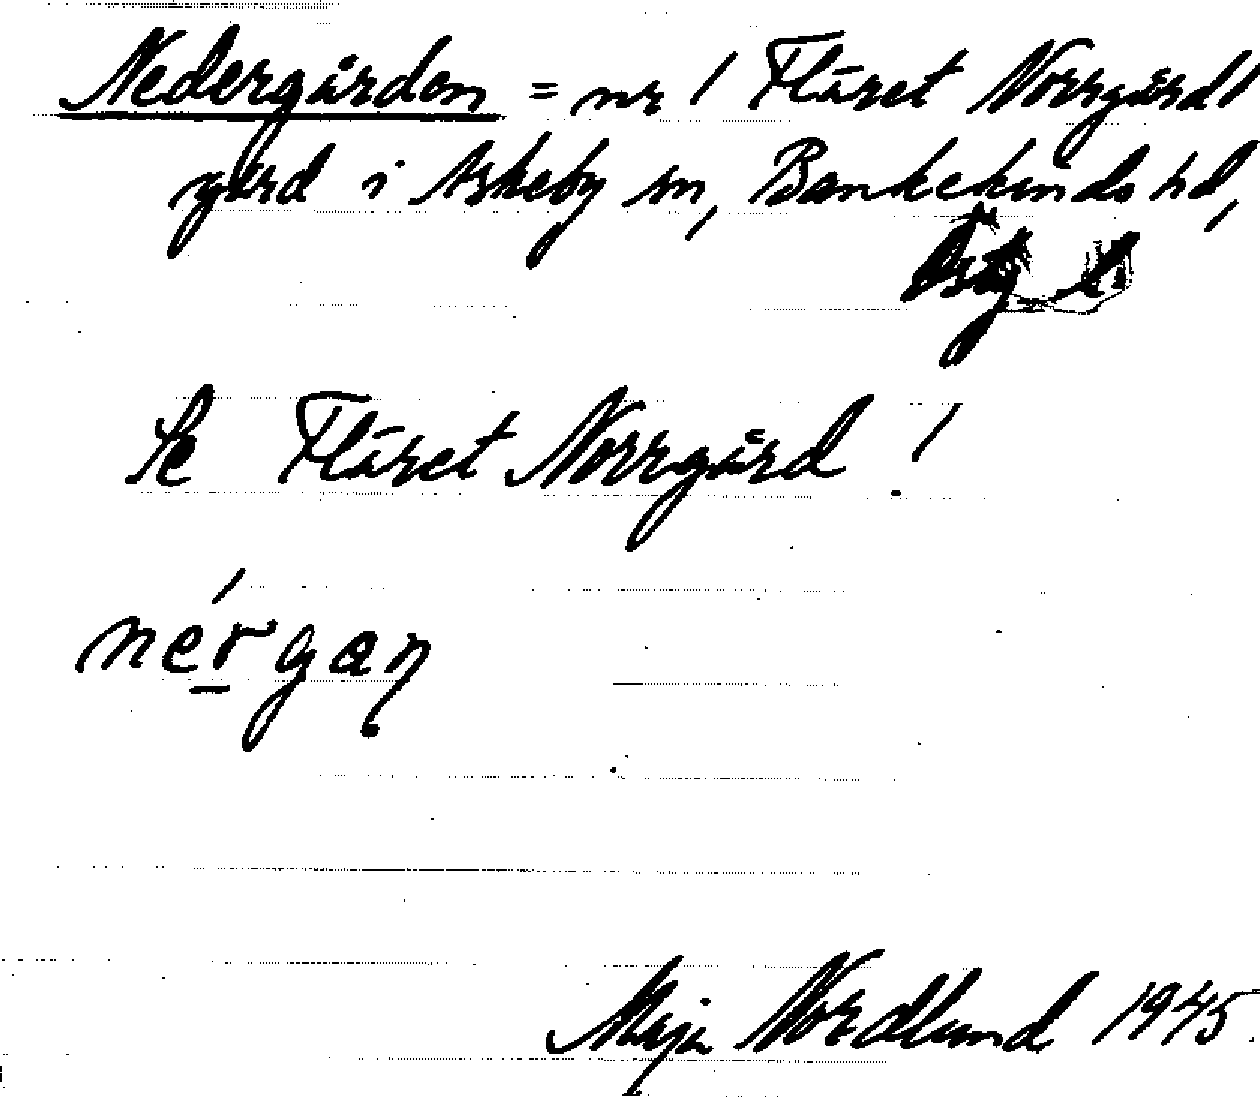 Nedergården = nr 1 Flåret Norrgård 1
gård i Askeby sn, Bankekinds hd,
Östg
Se Flåret Norrgård 1
nérgaɳ
Maja Nordlund 1945